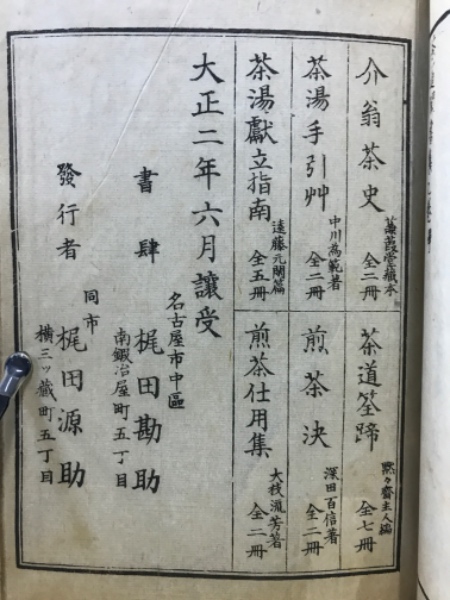 介翁茶史
蒹葭堂藏本
全二冊
茶湯手引艸
中川為範著
全二冊
茶湯獻立指南
遠藤元閑篇
全五冊
茶道筌蹄
黙々齋主人編
全七冊
煎茶決
深田百信著
全二冊
煎茶仕用集
大枝流芳著
全二冊
大正二年六月讓受
名古屋市中區
南鍛冶屋町五丁目
書肆 梶田勘助
同市
横三ッ藏町五丁目
發行者 梶田源助